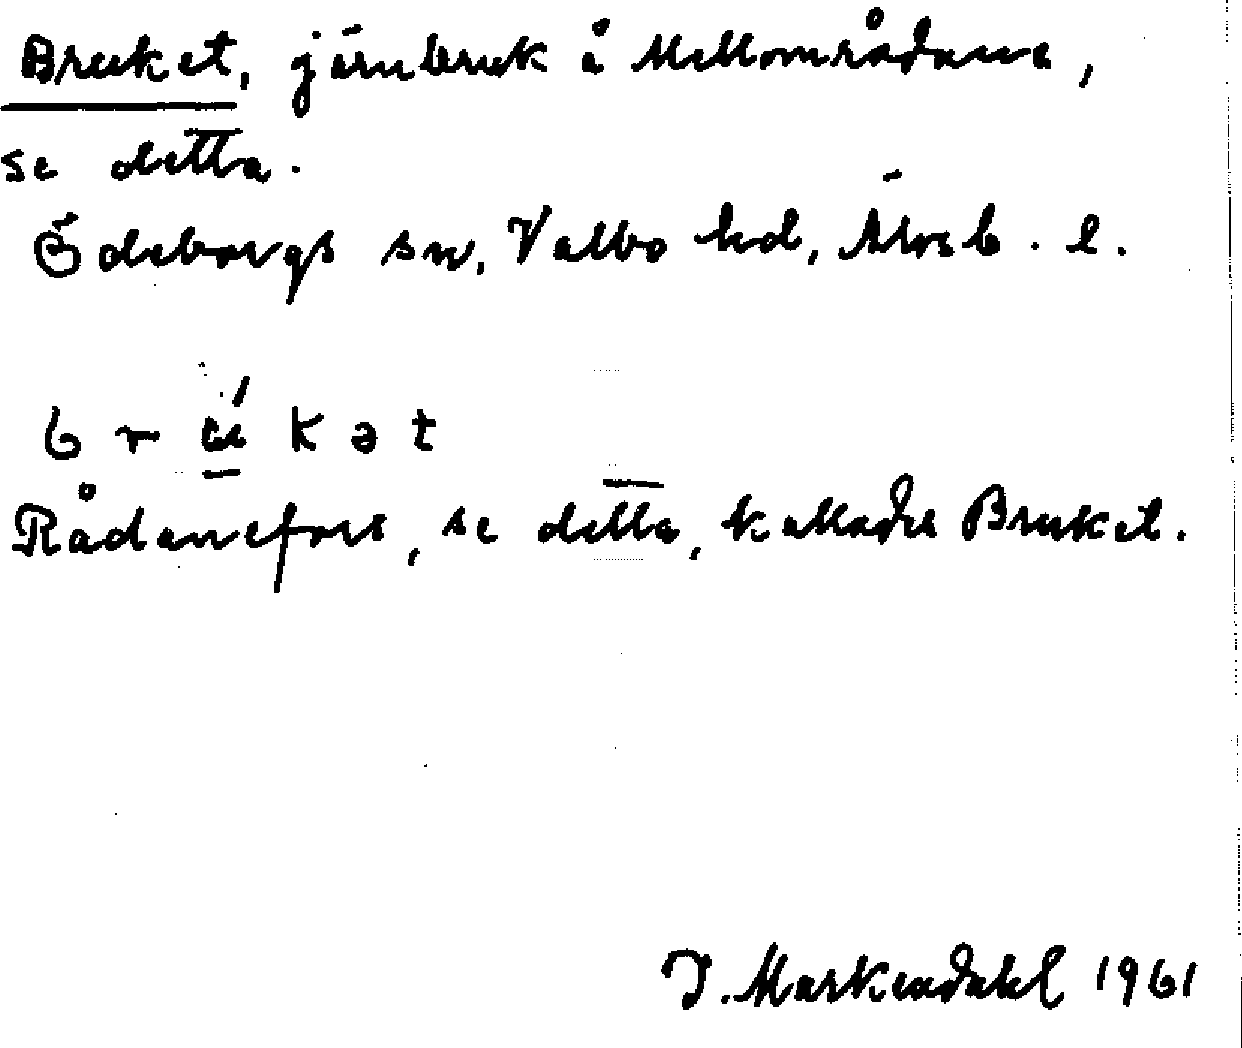 Bruket, järnbruk å Mellområdane,
se detta.
Ödeborgs sn, Valbo hd, Älvsb. l.
b r ú k ə t
Rådanefors, se detta, kallades Bruket.
J. Markendahl 1961